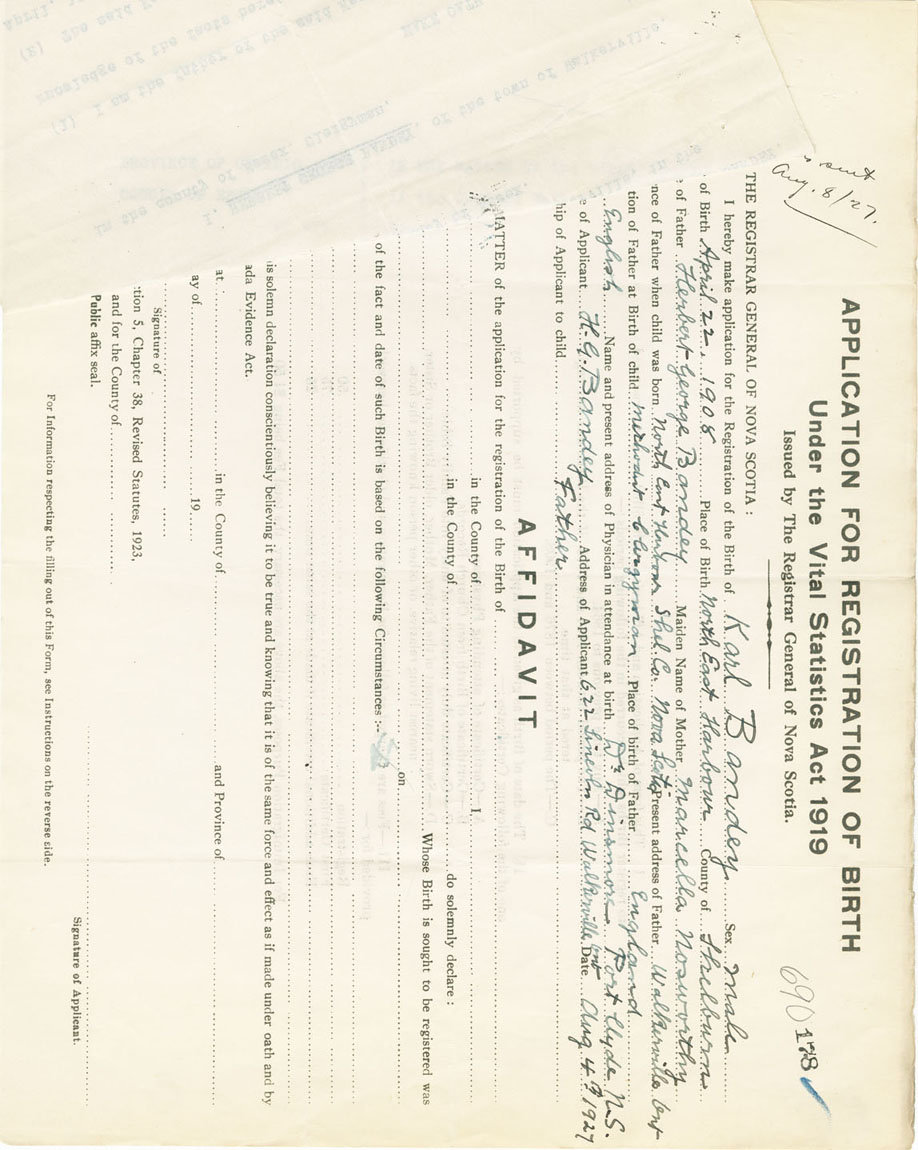 Aug. 8/27.
690
178
APPLICATION FOR REGISTRATION OF BIRTH
Under the Vital Statistics Act 1919
Issued by The Registrar General of Nova Scotia.
THE REGISTRAR GENERAL OF NOVA SCOTIA:
I hereby make application for the Registration of the Birth of Karl Bandey Sex Male
of Birth April 22, 1908 Place of Birth North East Harbour County of Shelburne
of Father Herbert George Bandey Maiden Name of Mother Marcella Nosworthy
nce of Father when child was born North East Harbour Shel. Co. Nova Scotia Present address of Father Walkerville Ont
tion of Father at Birth of child Methodist Clergyman Place of birth of Father England
English Name and present address of Physician in attendance at birth Dr Dinsmore Port Clyde N.S.
e of Applicant H.G. Bandey Address of Applicant 622 Lincoln Rd Walkerville Ont Date Aug 4th 1927
hip of Applicant to child Father
AFFIDAVIT
MATTER of the application for the registration of the Birth of
in the County of I
in the County of do solemnly declare:
Whose Birth is sought to be registered was
on
of the fact and date of such Birth is based on the following Circumstances:-
is solemn declaration conscientiously believing it to be true and knowing that it is of the same force and effect as if made under oath and by
ada Evidence Act.
at in the County of and Province of
ay of 19
Signature of
Signature of Applicant.
tion 5, Chapter 38, Revised Statutes, 1923,
and for the County of
Public affix seal.
For Information respecting the filling out of this Form, see Instructions on the reverse side.